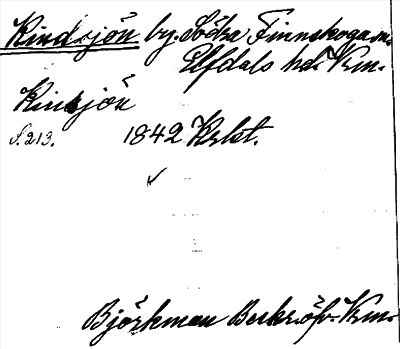 Kindsjön by. Södra Finnskoga sn.
Elfdals hd. Vrm.
Kinsjön
S. 213. 1842 Krlst.
Björkman Beskr. öfv. Vrm.